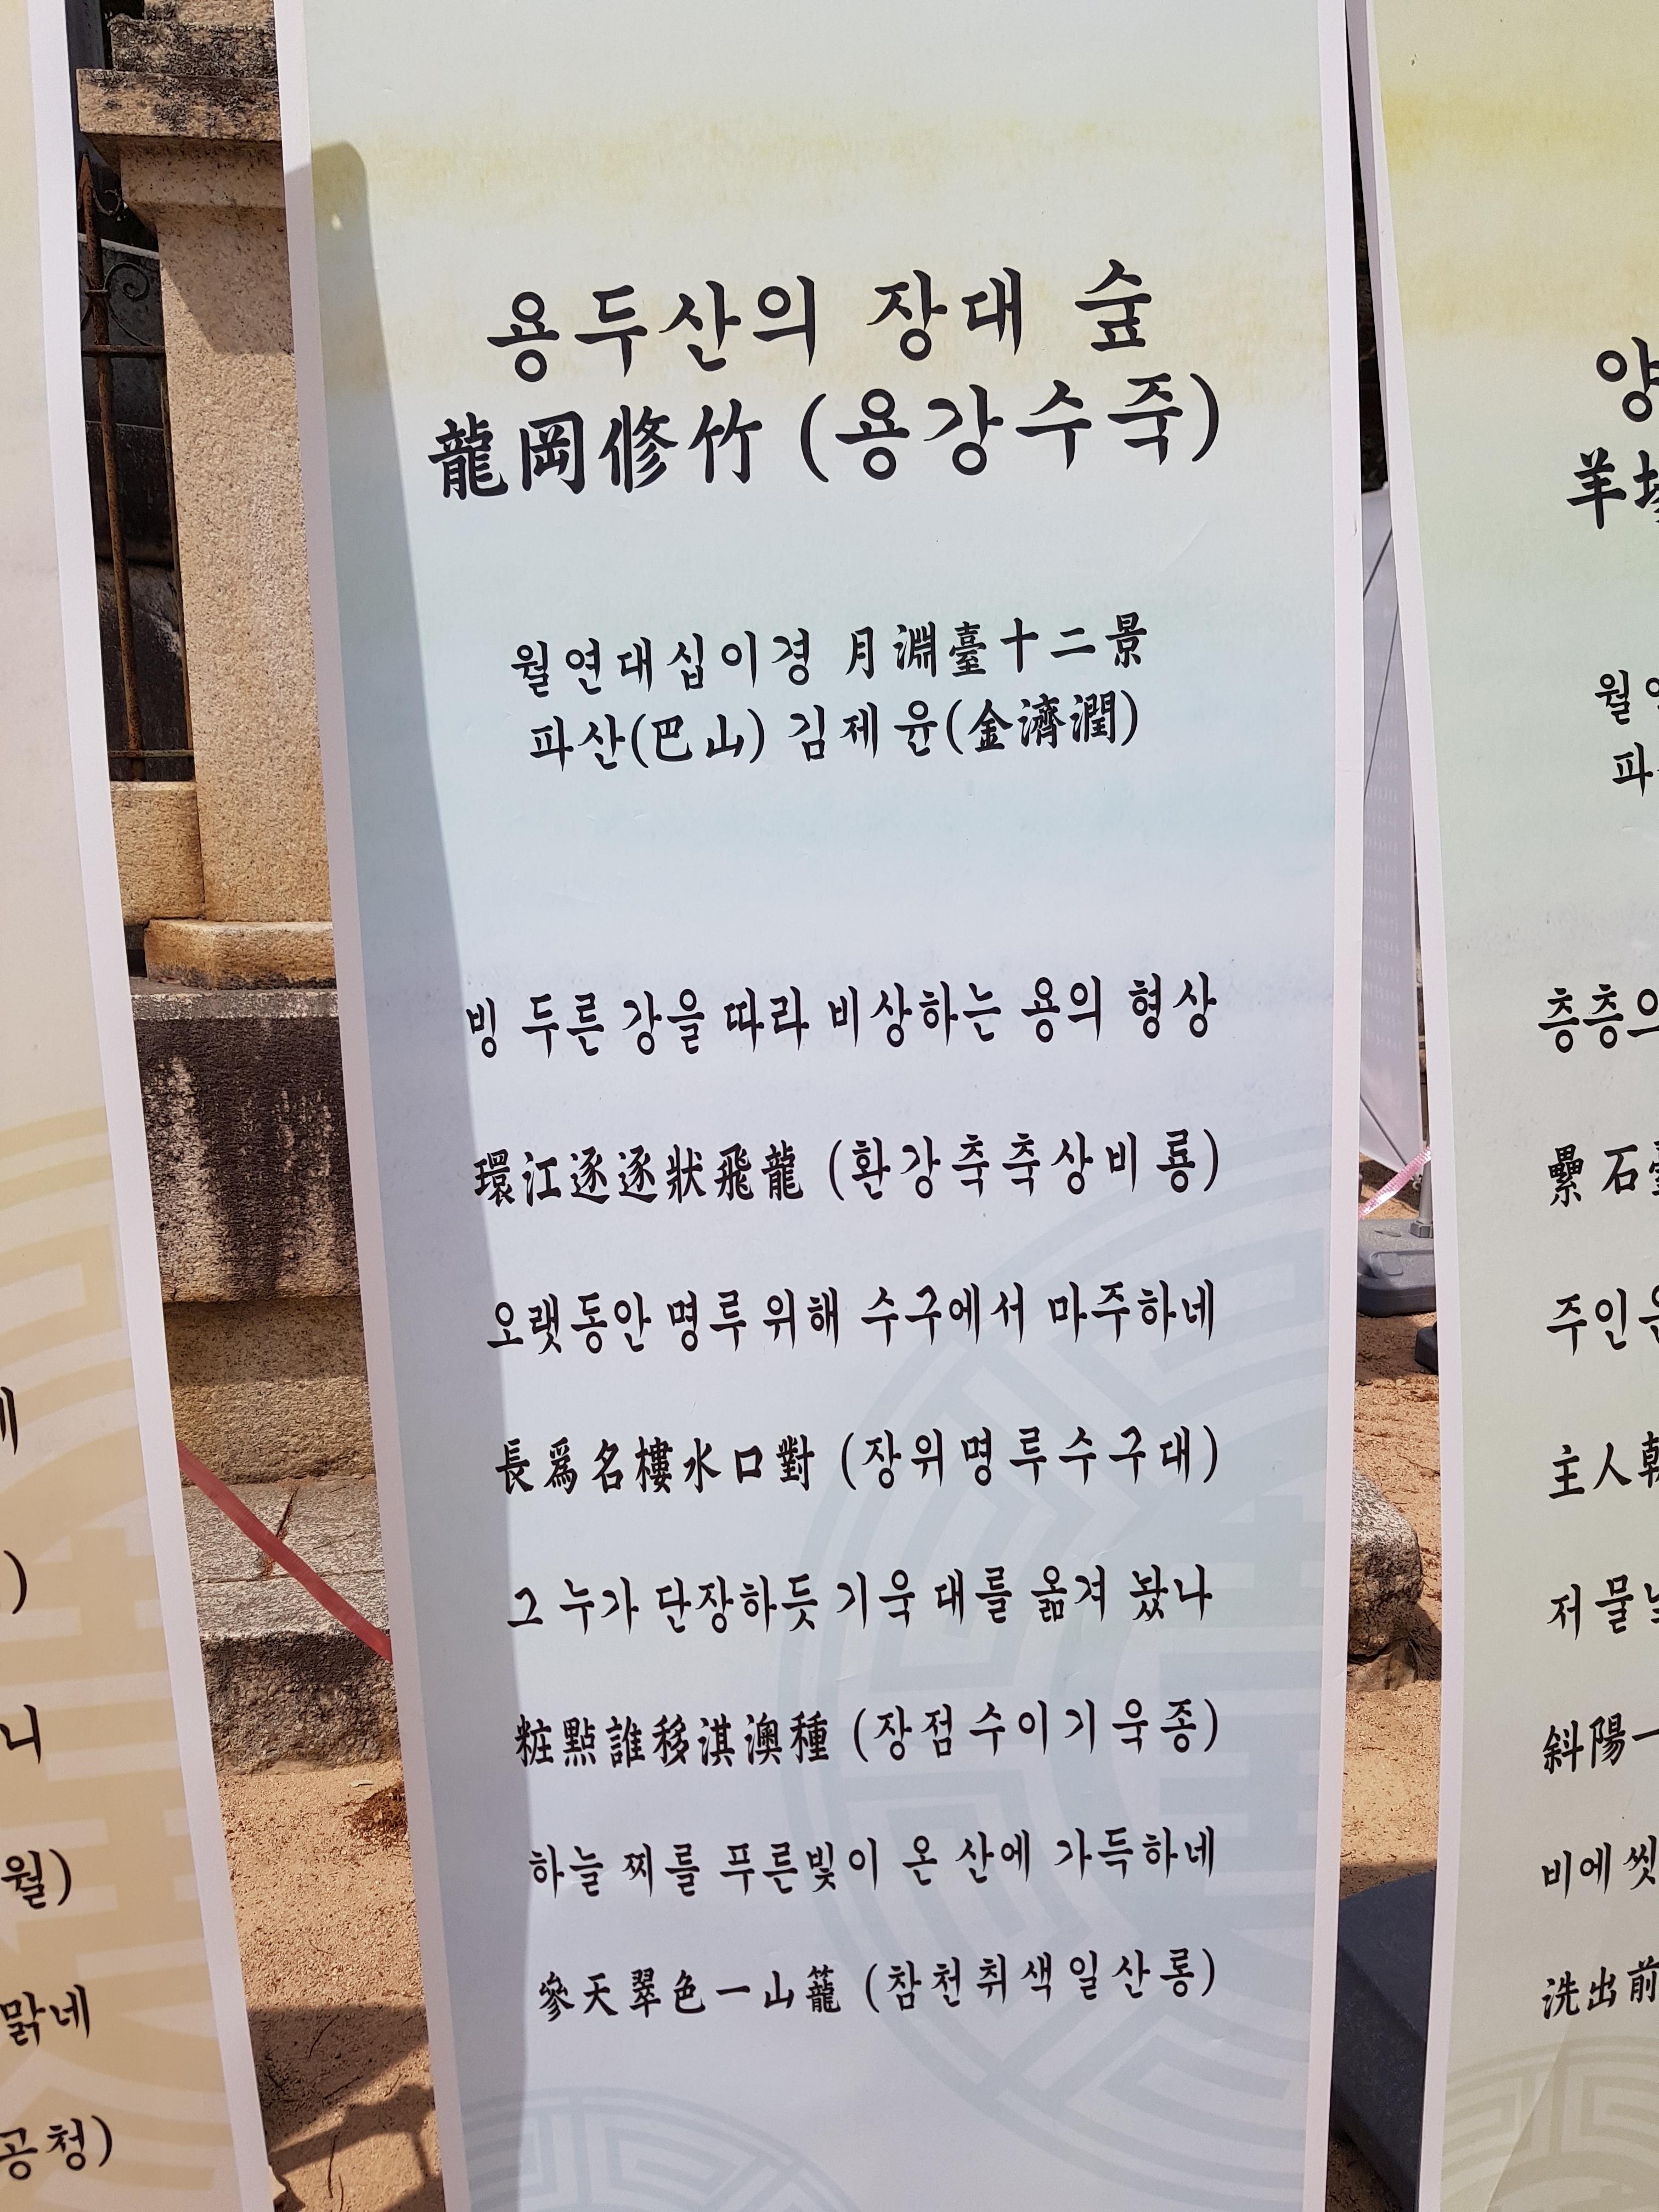 용두산의 장대 숲
龍岡修竹 (용강수죽)
월연대십이경 月淵臺十二景
파산(巴山) 김제윤(金濟潤)
빙 두른 강을 따라 비상하는 용의 형상
環江逐逐狀飛龍 (환강축축상비룡)
오랫동안 명루 위해 수구에서 마주하네
長爲名樓水口對 (장위명루수구대)
그 누가 단장하듯 기욱 대를 옮겨 놨나
粧點誰移淇澳種 (장점수이기욱종)
하늘 찌를 푸른빛이 온 산에 가득하네
參天翠色一山籠 (참천취색일산롱)
네
)
니
월)
맑네
공청)
양
羊
월
파
층층의
纍石臺
주인은
主人
저물
斜陽一
비에 씻
洗出前